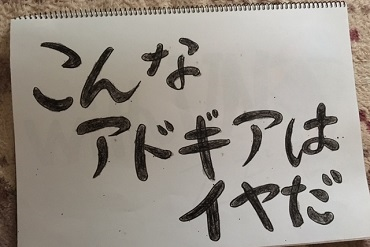 こんな
アドギアは
イヤだ